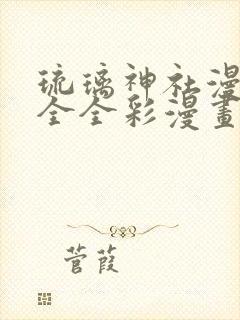 琉璃神社漫
全全彩漫畫
菅葭